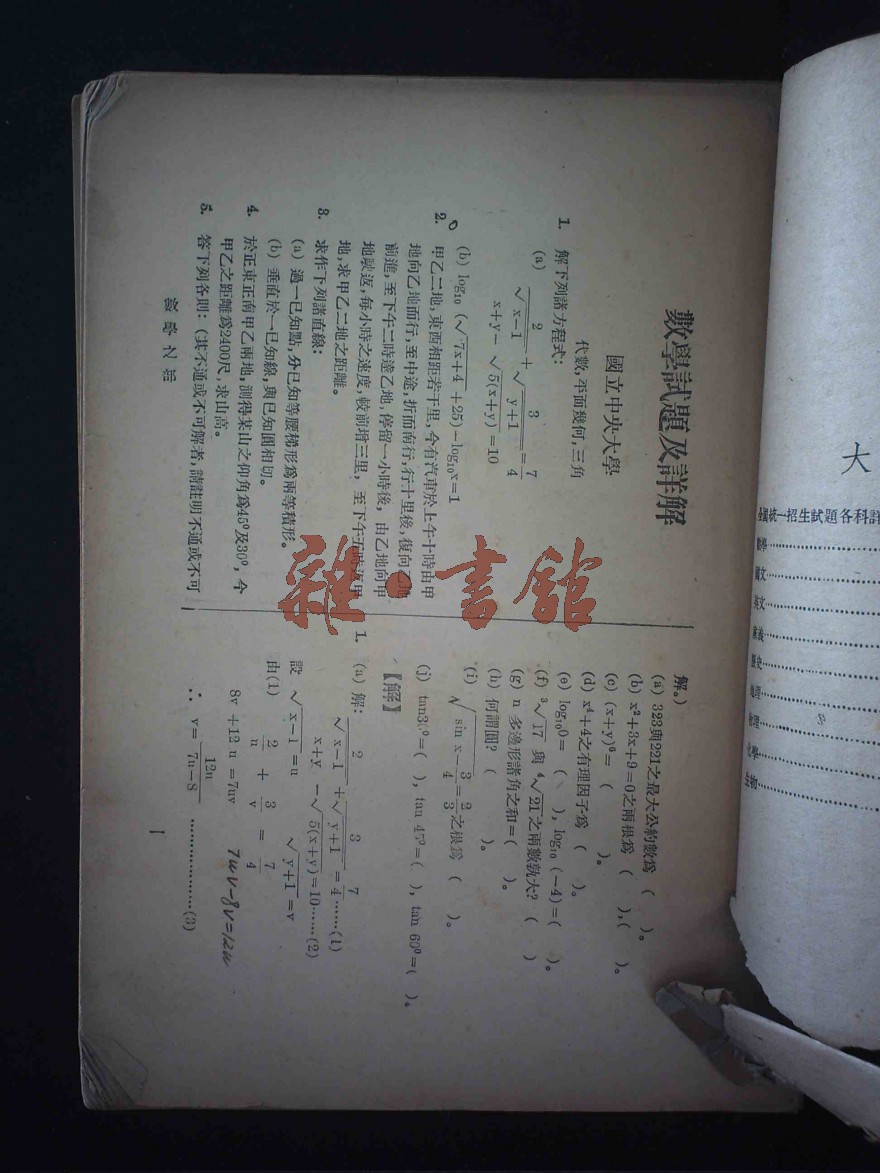 數學試題及詳解
國立中央大學
代數,平面幾何,三角
1. 解下列諸方程式:
(a) 2/√x−1 + 3/√y+1 = 7/4
x+y− √5(x+y) =10
(b) log10 (√7x+4 +25)−log10x=1
2. 甲乙二地,東西相距若干里,今有汽車於上午十時由甲
地向乙地而行,至中途,折而南行,行十里後,復向乙地
前進,至下午二時達乙地,停留一小時後,由乙地向甲
地駛返,每小時之速度,較前增三里,至下午五時返甲
地,求甲乙二地之距離。
3. 求作下列諸直線:
(a) 過一已知點,分已知等腰梯形爲兩等積形。
(b) 垂直於一已知線,與已知圓相切。
4. 於正東正南甲乙兩地,測得某山之仰角爲45⁰及30⁰,今
甲乙之距離爲2400尺,求山高。
5. 答下列各則:(其不通或不可解者,請註明不通或不可
解。)
(a) 323與221之最大公約數爲 ( )。
(b) x²+3x+9=0之兩根爲 ( ),( )。
(c) (x+y)⁰= ( )。
(d) x⁴+4之有理因子爲 ( )。
(e) log₁₀0= ( ), log₁₀ (−4)=( )。
(f) ³√17 與 ⁴√21 之兩數孰大? ( )
(g) n 多邊形諸角之和=( )。
(h) 何謂圓? ( )。
(i) √sin x− 3/4 = 2/3 之根爲 ( )。
(j) tan30⁰=( ), tan 45⁰=( ), tan 60⁰=( )。
【解】
1. (a) 解: 2/√x−1 + 3/√y+1 = 7/4 ……(1)
x+y −√5(x+y)=10……(2)
設 √x−1=u √y+1=v
由(1) 2/u + 3/v = 7/4
8v +12 u =7uv 7uv−8v=12u
∴ v= 12u/7u−8 …………………(3)
1
大
全國統一招生試題各科詳
數學
國文
英文
歷史
地理
物理
化學
生物
雜·書館